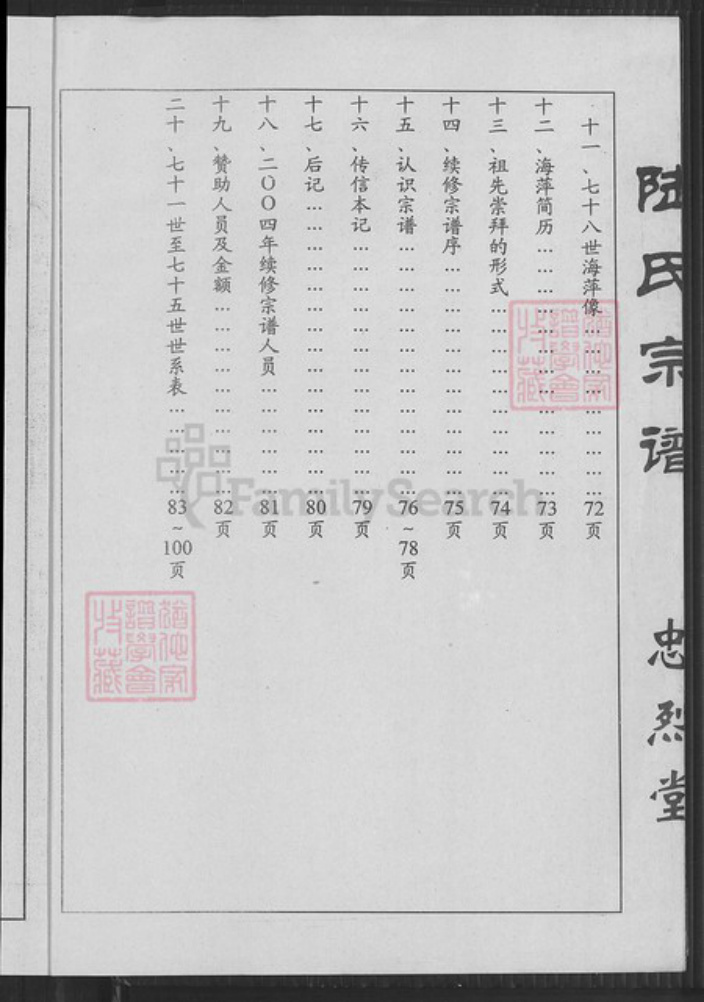 陆氏宗谱
忠烈堂
十一、七十八世海萍像………………………72页
十二、海萍简历………………………………73页
十三、祖先崇拜的形式………………………74页
十四、续修宗谱序……………………………75页
十五、认识宗谱………………………………76~78页
十六、传信本记………………………………79页
十七、后记……………………………………80页
十八、二〇〇四年续修宗谱人员……………81页
十九、赞助人员及金额………………………82页
二十、七十一世至七十五世世系表…………83~100页
FamilySearch
猶他家
譜學會
特藏
猶他家
譜學會
特藏